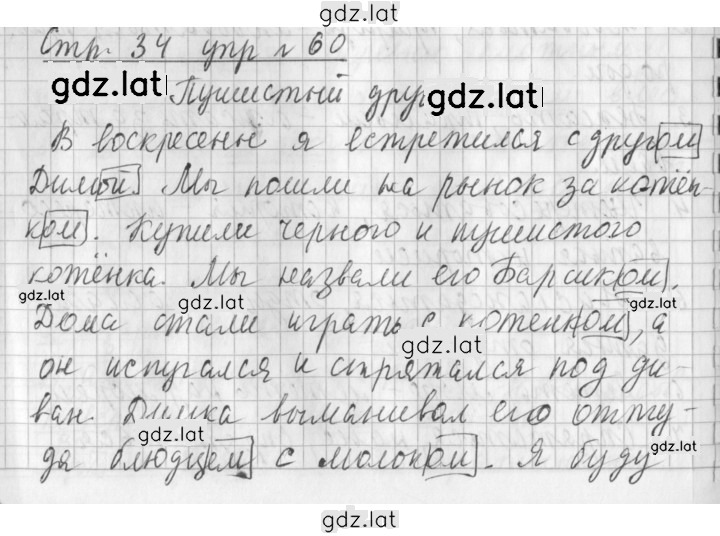 gdz.lat
Стр. 34 упр № 60
gdz.lat
Пушистый друг gdz.lat
В воскресенье я встретился с другом
Димкой. Мы пошли на рынок за котён-
ком. Купили черного и пушистого
котёнка. Мы назвали его Барсиком.
gdz.lat gdz.lat gdz.lat
Дома стали играть с котенком, а
gdz.lat
он испугался и спрятался под ди-
ван. Димка выманивал его отту-
gdz.lat gdz.lat
да блюдцем с молоком. Я буду
gdz.lat
gdz.lat